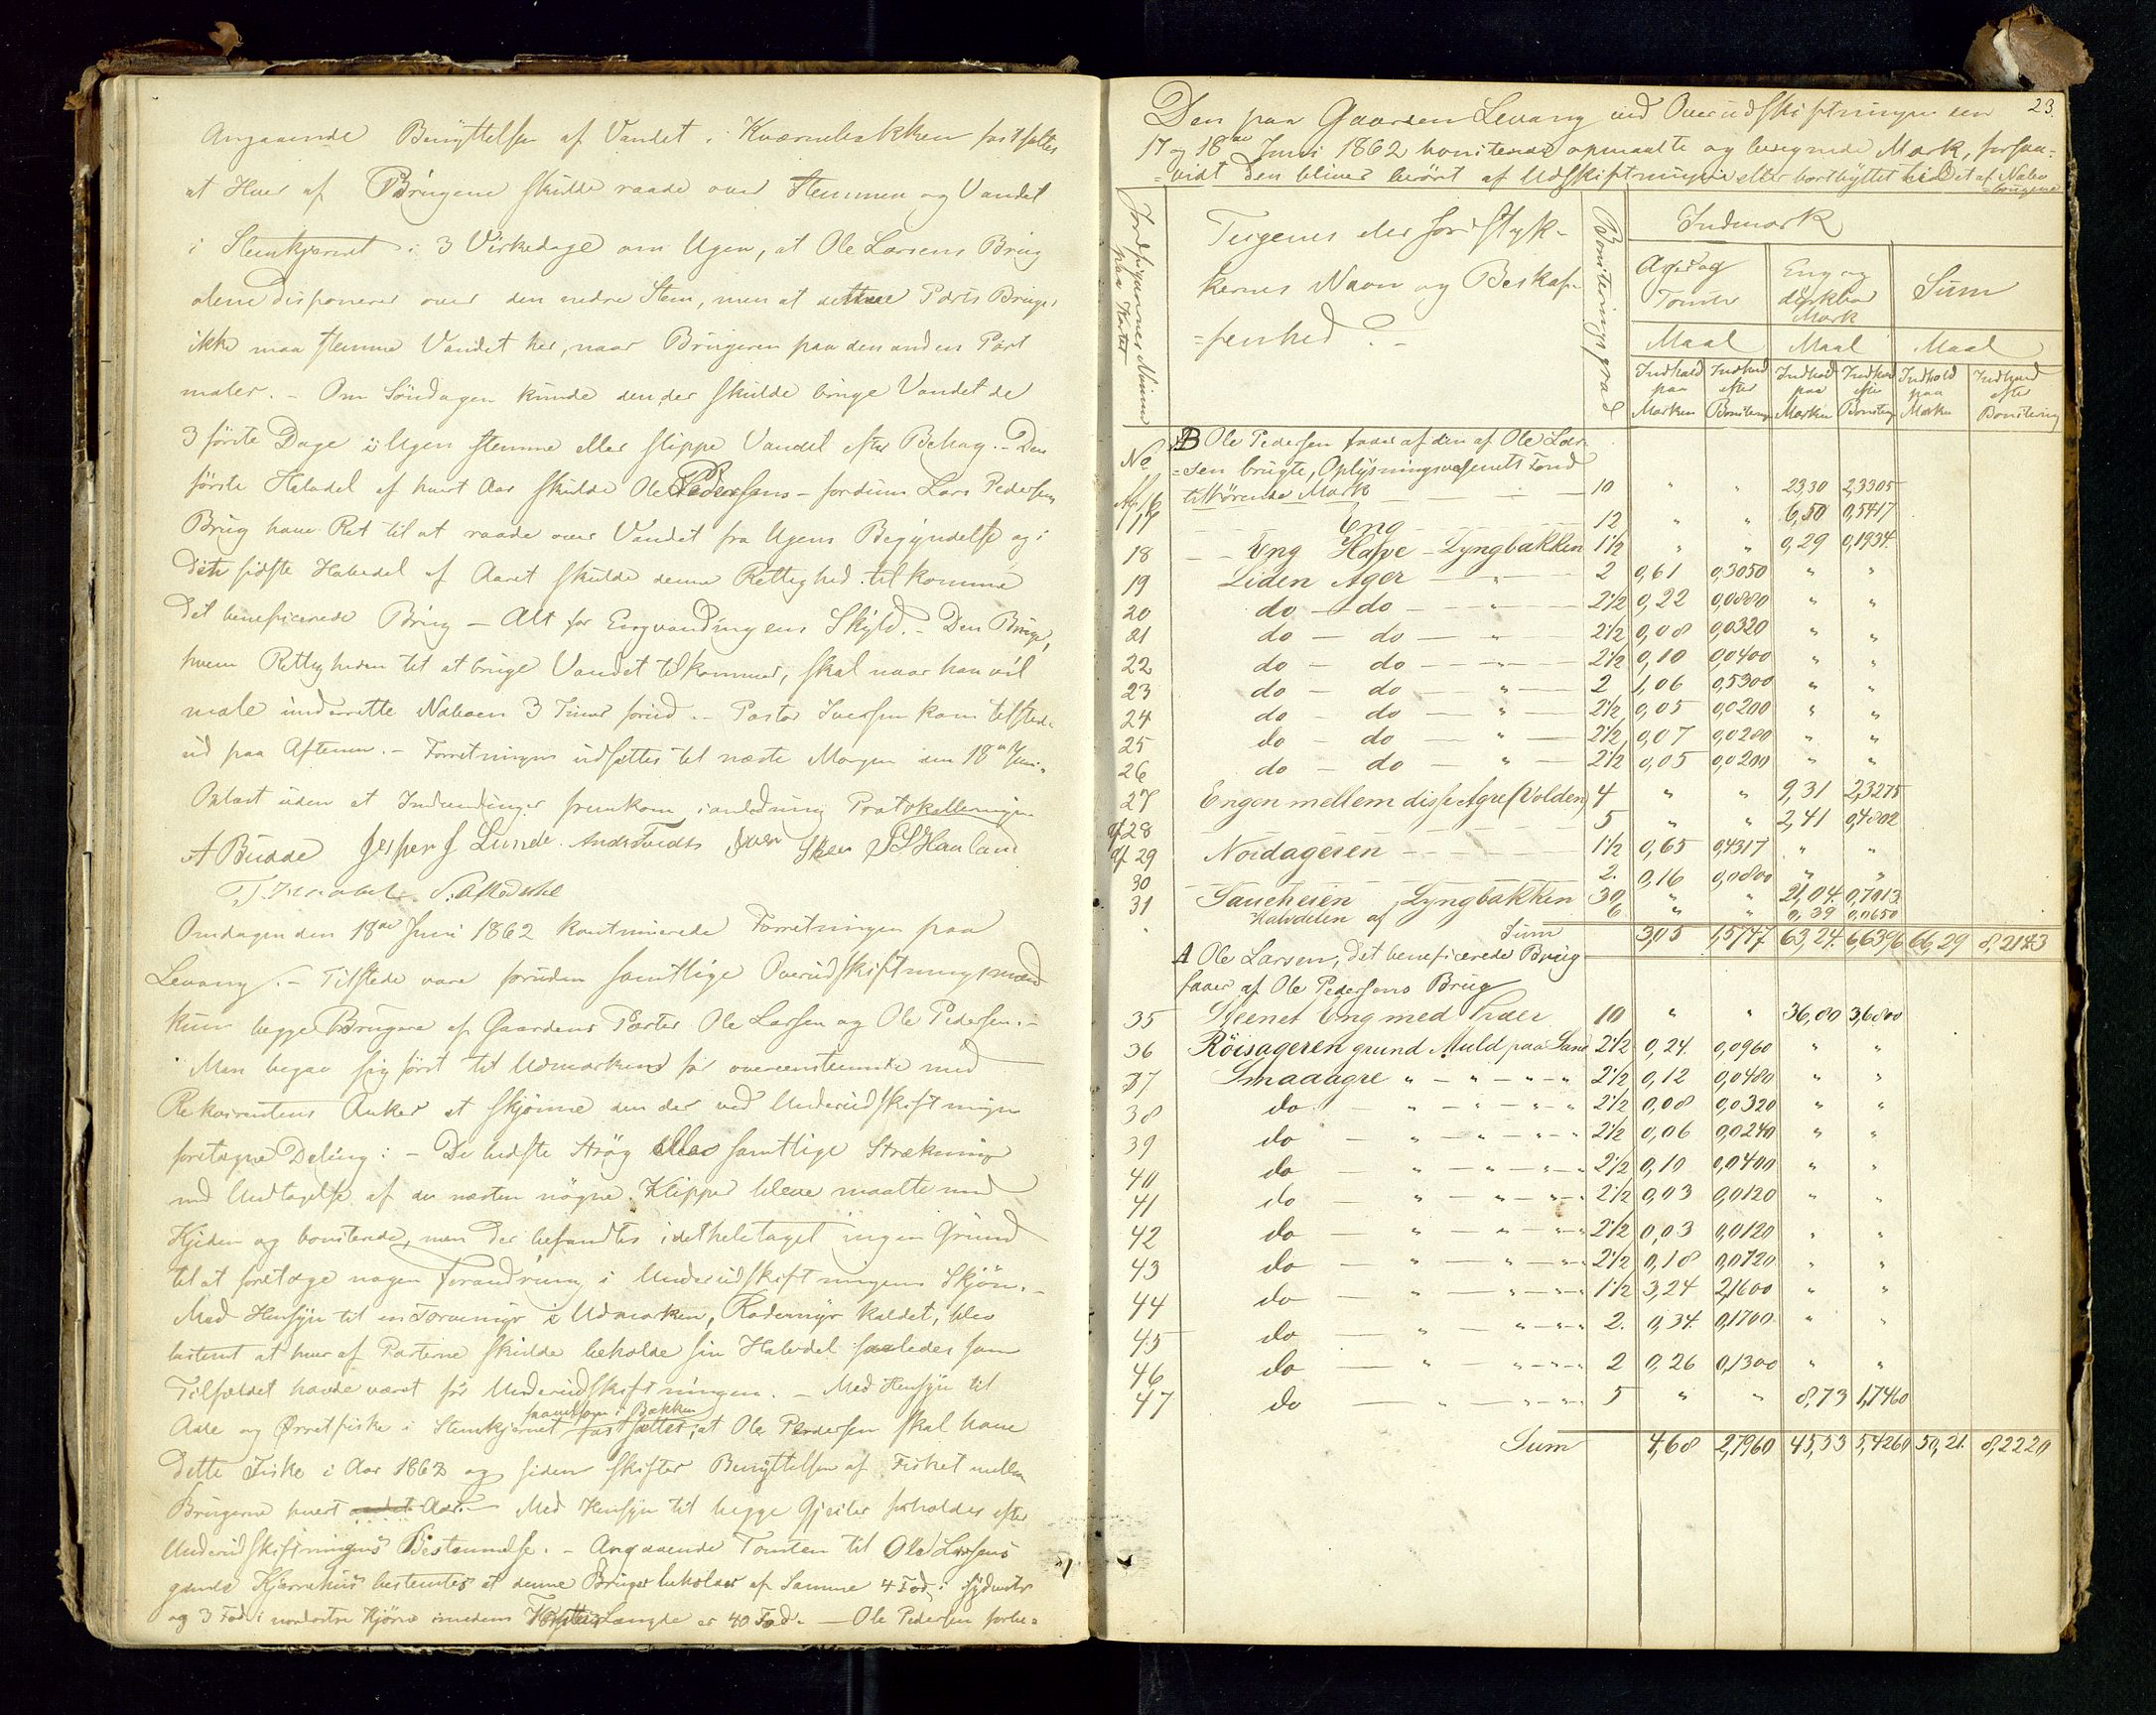 Angaaende Benyttelsen af Vandet i Kværnebækken fastsattes
at Hver af Brugene skulde raade over Stemmen og Vandet
i Stemkjærnet i 3 Virkedage om Ugen, at Ole Larsens Brug
alene disponerer over den nedre Stem, men at dette Parts Bruger
ikke maa stemme Vandet her, naar Brugeren paa den anden Part
maler. – Om Søndagen kunde den, der skulde bruge Vandet de
3 første Dage i Ugen stemme eller slippe Vandet efter Behag. – Den
første Halvdel af hvert Aar skulde Ole Pedersens – fordum Lars Pedersens
Brug have Ret til at raade over Vandet fra Ugens Begyndelse og i
den sidste Halvdel af Aaret skulde denne Rettighed tilkomme
det beneficerede Brug – Alt for Engvandingens Skyld. – Den Bruger,
hvem Rettigheden til at bruge Vandet tilkommer, skal naar han vil
male underrette Naboen 3 Timer forud. – Pastor Iversen kom tilstede
ud paa Aftenen. – Forretningen udsattes til næste Morgen den 18de Juni.
Oplæst uden at Indvendinger fremkom i anledning Protokolleringen
A Budde Jesper J Lunde Anders Tvedts Iver Skeie
Omdagen den 18de Juni 1862 kontinuerede Forretningen paa
Levang. – Tilstede vare foruden samtlige Overudskiftningsmænd
kun begge Brugere af Gaardens Parter Ole Larsen og Ole Pedersen. –
Man begav sig først til Udmarken for overeenstemmende med
Rekvirentens Anker at skjønne den der ved Underudskiftningen
foretagne Deling: – De bedste Strøg eller samtlige Strækninger
med Undtagelse af de næsten nøgne Klipper bleve maalte med
Kjeden og boniterede, men der befandtes i det hele taget ingen Grund
til at foretage nogen Forandring i Underudskiftningens Skjøn. –
Med Hensyn til en Torvemyr i Udmarken, Rodemyr kaldet, blev
bestemt at hver af Parterne skulde beholde sin Halvdel saaledes som
Tilfældet havde været før Underudskiftningen. – Med Hensyn til
Aale og Ørretfiske i Stemkjærnet samt som i Bækken fastsættes, at Ole Pedersen skal have
dette Fiske i Aar 1862 og siden skifter Benyttelsen af Fisket mellem
Brugerne hvert andet Aar. – Med Hensyn til begge Gjeiler forholdes efter
Underudskiftningens Bestemmelse. – Angaaende Tomten til Ole Larsens
gamle Kjærnehus bestemtes at denne Bruger beholder af Samme 4 Fod i sydvestre
og 3 Fod i nordostre Hjørne imedens Tomtens Længde er 40 Fod. – Ole Pedersen forbe=
23.
Den paa Gaarden Levang ved Overudskiftningen den
17 og 18de Juni 1862 boniterede opmaalte og beregnede Mark, forsaa=
=vidt den bliver berørt af Udskiftningen eller bortbyttet til det af Nabo
=brugene
Jordfigurernes Numer paa Kartet
Teigenes eller Jordstyk-
kernes Navn og Beskaf-
=fenhed. –
Boniteringsgrad
Indmark
Ager og Tomter
Eng og dyrkbar Mark
Sum
Maal Maal Maal
Indhold paa Marken Indhold efter Bonitering Indhold paa Marken Indhold efter Bonitering Indhold paa Marken Indhold efter Bonitering
No B Ole Pedersen faaer af den af Ole Lar-
=sen brugte, Oplysningsvæsenets Fond
tilhørende Mark 10 " " 23,30 2,3305
17 Eng 12 " " 6,50 0,5417
18 Eng Hafve – Lyngbakken 1½ " " 0,29 0,1934
19 Liden Ager 2 0,61 0,3050 " "
20 do – do 2½ 0,22 0,0880 " "
21 do – do 2½ 0,08 0,0320 " "
22 do – do 2½ 0,10 0,0400 " "
23 do – do 2 1,06 0,5300 " "
24 do – do 2½ 0,05 0,0200 " "
25 do – do 2½ 0,07 0,0280 " "
26 do – do 2½ 0,05 0,0200 " "
27 Engen mellem disse Agre (Volden) 4 " " 9,31 2,3275
af 28 5 " " 2,41 0,4802
af 29 Nordageren 1½ 0,65 0,4317 " "
30 2. 0,16 0,0800 " "
31 Saueheien Lyngbakken 30 " " 21,04 0,7013
Halvdelen af 6 " " 0,39 0,0650
Sum 3,05 1,5747 63,24 6,6396 66,29 8,2143
A Ole Larsen, det beneficerede Brug
faaer af Ole Pedersens Brug
35 Steenet Eng med Krat 10 " " 36,80 3,6800
36 Röisageren grund Muld paa Sand 2½ 0,24 0,0960 " "
37 Smaaagre " – " – " – " 2½ 0,12 0,0480 " "
38 do 2½ 0,08 0,0320 " "
39 do 2½ 0,06 0,0240 " "
40 do 2½ 0,10 0,0400 " "
41 do 2½ 0,03 0,0120 " "
42 do 2½ 0,03 0,0120 " "
43 do 2½ 0,18 0,0720 " "
44 do 1½ 3,24 2,1600 " "
45 do 2. 0,34 0,1700 " "
46 do 2 0,26 0,1300 " "
47 do 5 " " 8,73 1,7460
Sum 4,68 2,7960 45,53 5,4260 50,21 8,2220